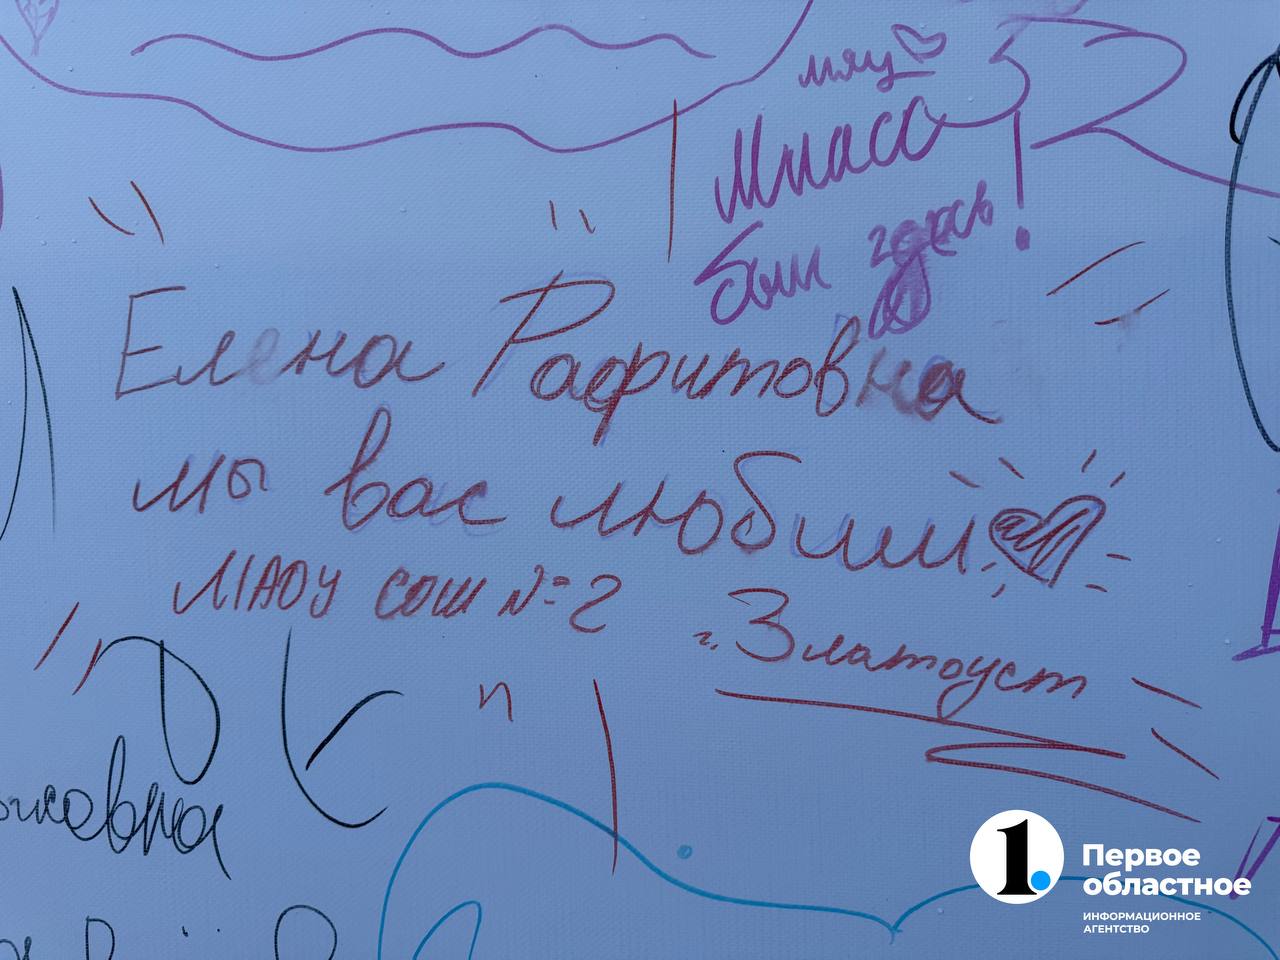 мяу
Миасс
был здесь!
Елена Рафитовна
мы вас любим
МАОУ сош №2
г. Златоуст
Первое
областное
ИНФОРМАЦИОННОЕ
АГЕНТСТВО